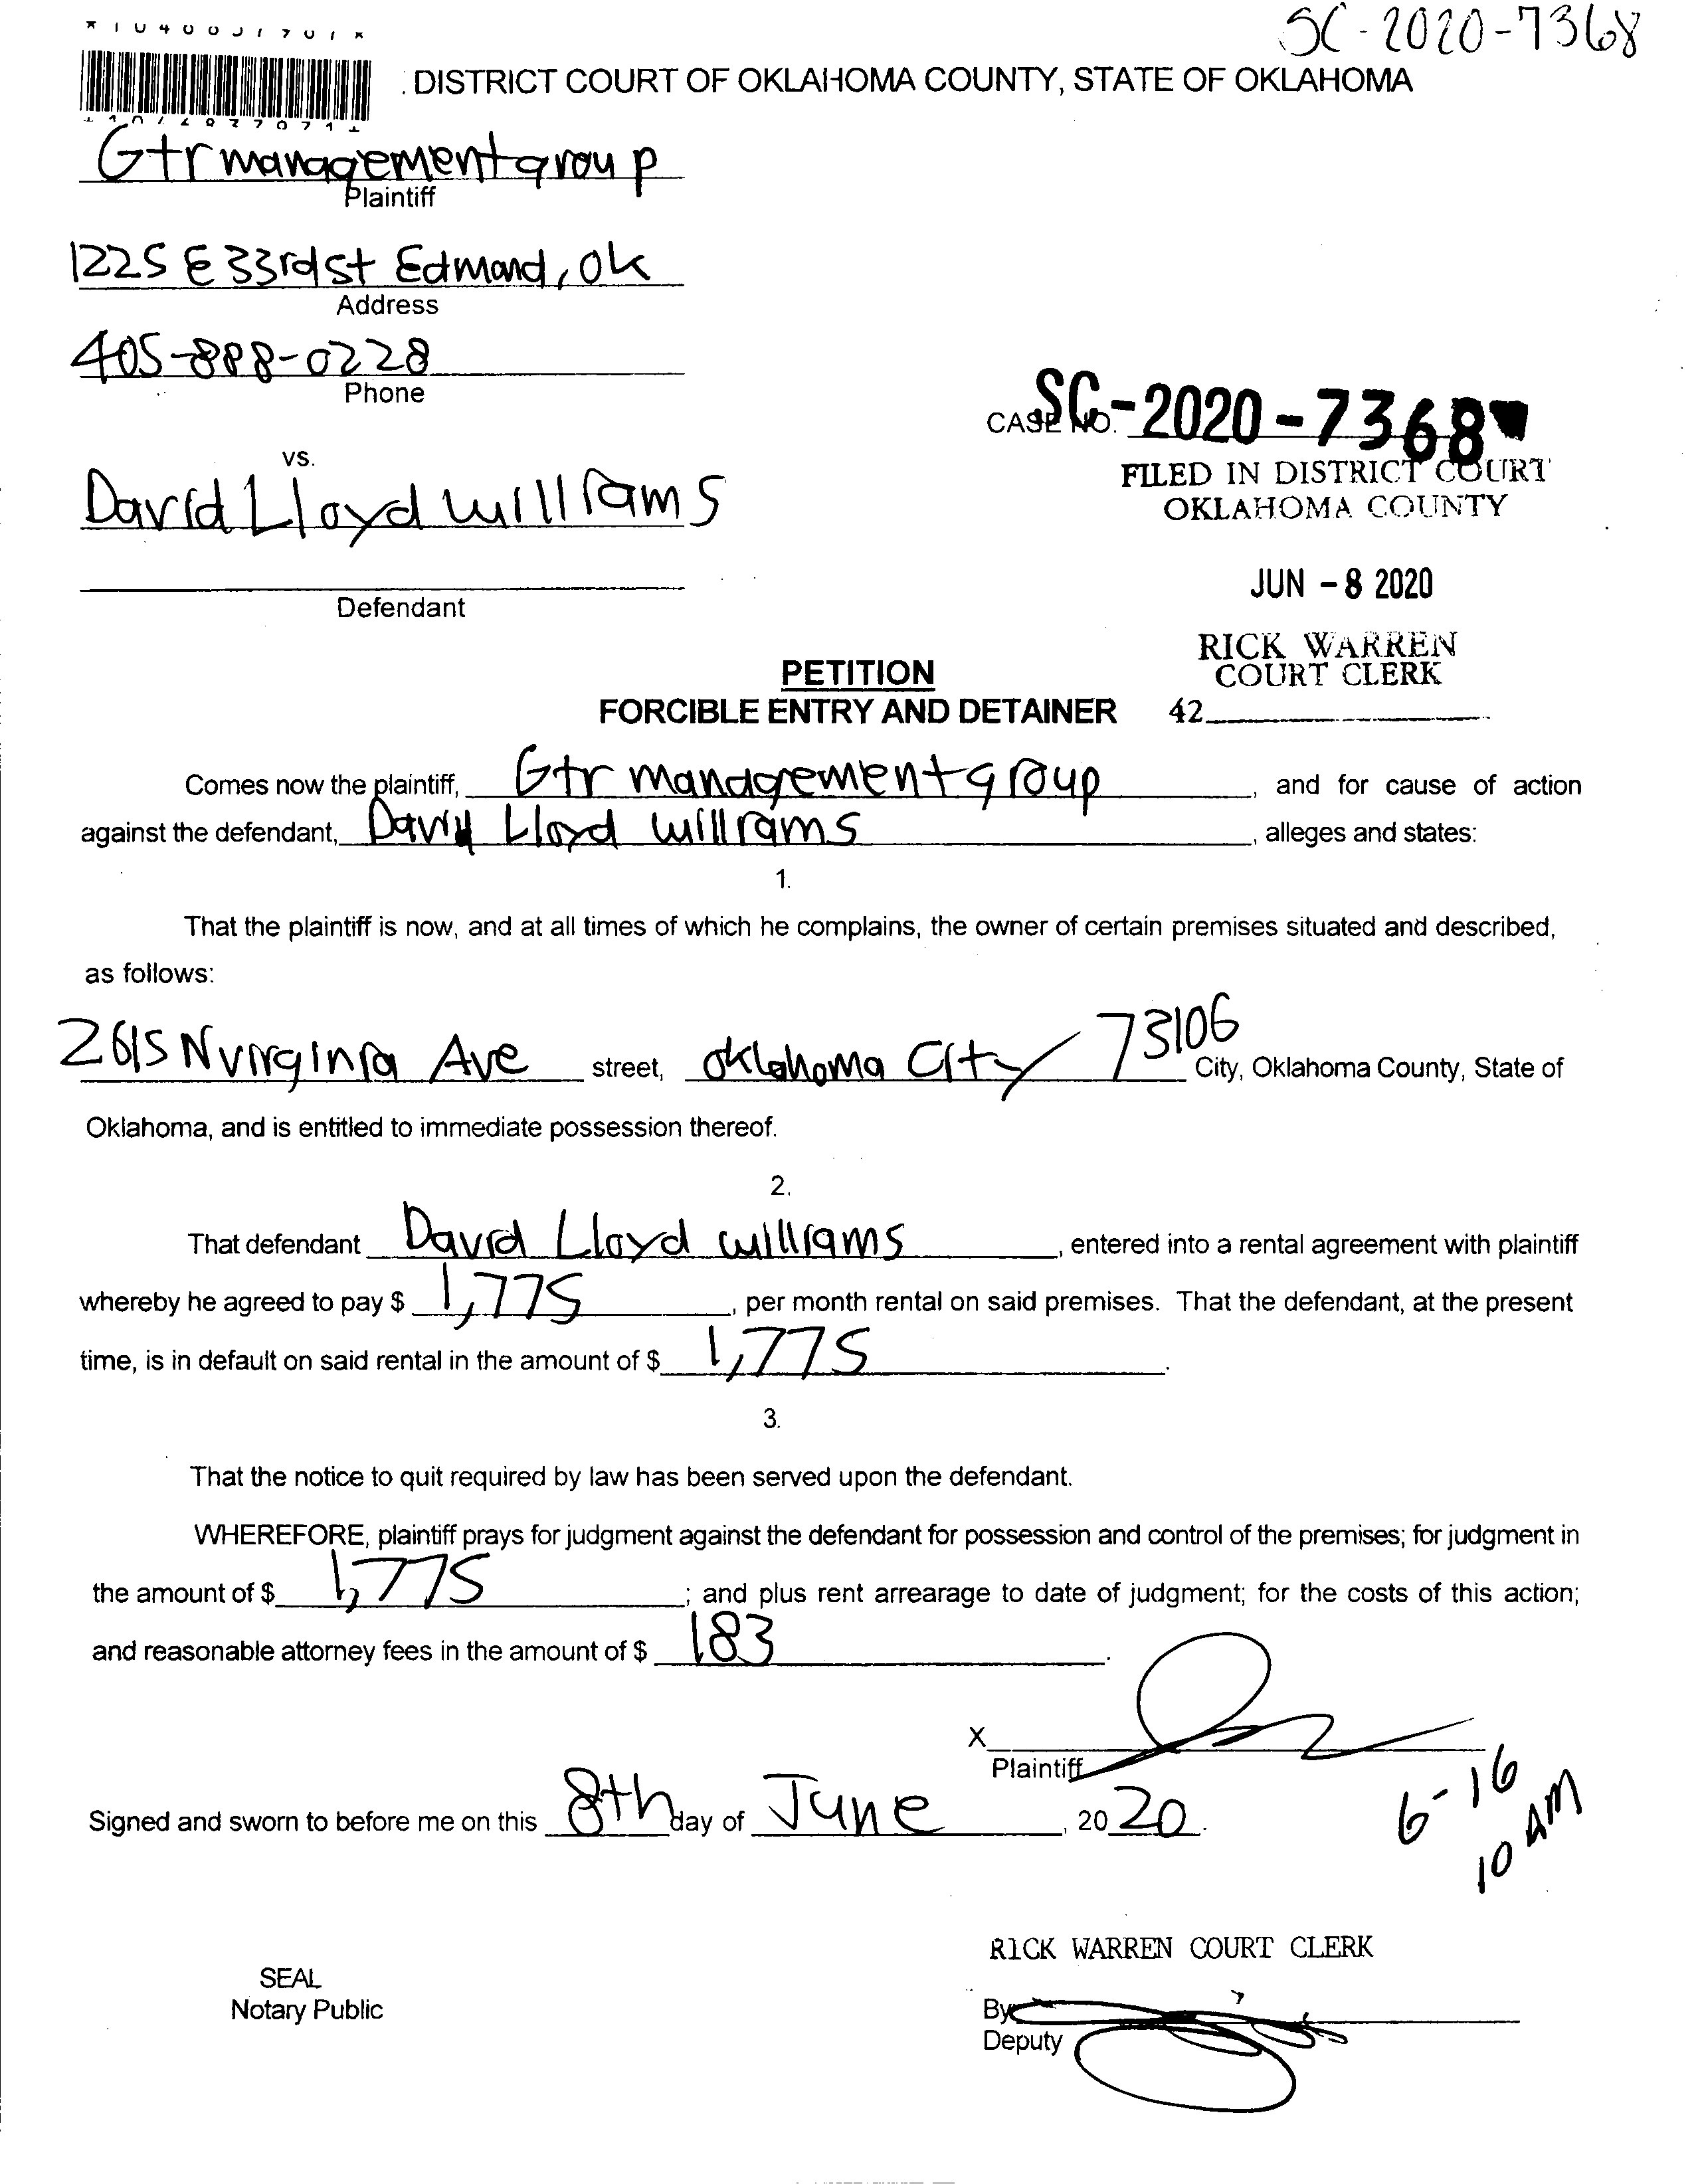 SC-2020-7368
DISTRICT COURT OF OKLAHOMA COUNTY, STATE OF OKLAHOMA
Gtr management group
Plaintiff
1225 E 33rd st Edmond, ok
Address
405-888-0228
Phone
CASE NO. SC-2020-7368
vs.
FILED IN DISTRICT COURT
OKLAHOMA COUNTY
David Lloyd williams
JUN - 8 2020
Defendant
RICK WARREN
COURT CLERK
PETITION
FORCIBLE ENTRY AND DETAINER
42
Comes now the plaintiff, Gtr management group, and for cause of action
against the defendant, David Lloyd williams, alleges and states:
1.
That the plaintiff is now, and at all times of which he complains, the owner of certain premises situated and described,
as follows:
2615 N virginia Ave street, oklahoma City / 73106 City, Oklahoma County, State of
Oklahoma, and is entitled to immediate possession thereof.
2.
That defendant David Lloyd williams, entered into a rental agreement with plaintiff
whereby he agreed to pay $ 1,775, per month rental on said premises. That the defendant, at the present
time, is in default on said rental in the amount of $ 1,775.
3.
That the notice to quit required by law has been served upon the defendant.
WHEREFORE, plaintiff prays for judgment against the defendant for possession and control of the premises; for judgment in
the amount of $ 1,775; and plus rent arrearage to date of judgment; for the costs of this action;
and reasonable attorney fees in the amount of $ 183.
X
Plaintiff
Signed and sworn to before me on this 8th day of June, 2020.
6-16
10 AM
RICK WARREN COURT CLERK
SEAL
Notary Public
By
Deputy